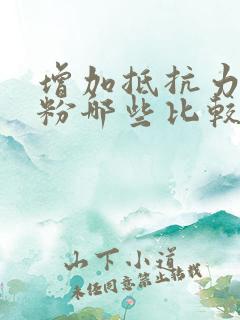 增加抵抗力
粉哪些比较
山下小道
未经同意禁止转载